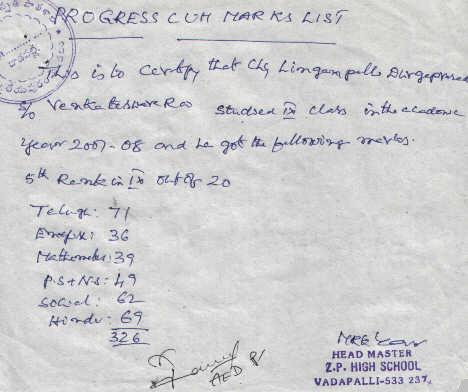 PROGRESS CUM MARKS LIST
This is to Certify that Ch; Lingampalli Durgaprasad
S/o Venkateswara Rao studied IX class in the academic
year 2007-08 and he got the following marks.
5th Rank in IX out of 20
Telugu: 71
English: 36
Mathematics: 39
P.S+N.S: 49
Social: 62
Hindi: 69
326
HEAD MASTER
Z.P. HIGH SCHOOL
VADAPALLI-533 237